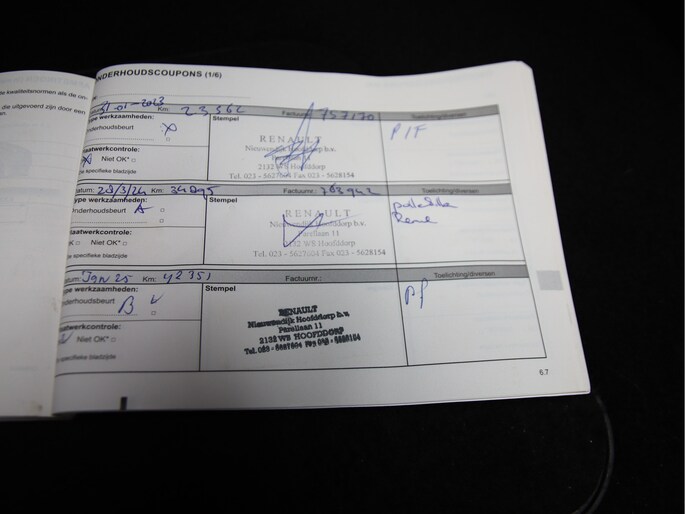 NDERHOUDSCOUPONS (1/6)
e kwaliteitsnormen als de on-
die uitgevoerd zijn door een
31-01-2023 Km: 23562 Factuurnr.: 757170 Toelichting/diversen
ype werkzaamheden: Stempel
nderhoudsbeurt X P/F
RENAULT
Nieuwendijk Hoofddorp b.v.
aatwerkcontrole:
X Niet OK*
2132 WE Hoofddorp
e specifieke bladzijde
Tel. 023 - 5627604 Fax 023 - 5628154
atum: 28/3/24 Km: 34095 Factuurnr.: 763942 Toelichting/diversen
ype werkzaamheden: Stempel
Onderhoudsbeurt A
René
RENAULT
Nieuwendijk Hoofddorp b.v.
Parellaan 11
aatwerkcontrole:
K Niet OK*
2132 WE Hoofddorp
e specifieke bladzijde
Tel. 023 - 5627604 Fax 023 - 5628154
tum: Jan 25 Km: 42351 Factuurnr.: Toelichting/diversen
ype werkzaamheden: Stempel
nderhoudsbeurt B
RENAULT
Nieuwendijk Hoofddorp b.v.
Parellaan 11
aatwerkcontrole:
Niet OK*
2132 WE HOOFDDORP
Tel. 023 - 5627604 Fax 023 - 5628154
specifieke bladzijde
6.7